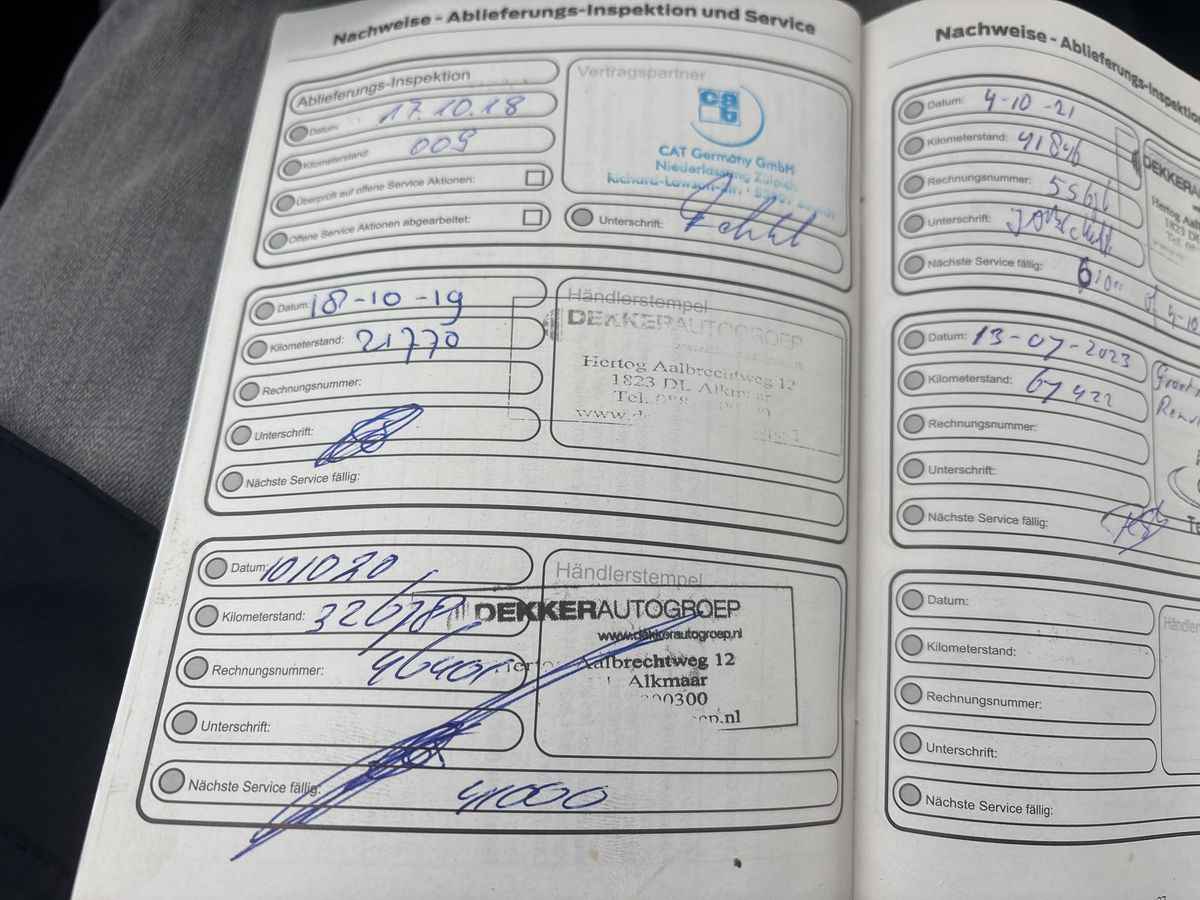 Nachweise - Ablieferungs-Inspektion und Service
Ablieferungs-Inspektion
Datum: 17.10.18
Kilometerstand: 009
Überprüft auf offene Service Aktionen:
Offene Service Aktionen abgearbeitet:
Vertragspartner
cab
CAT Germany GmbH
Niederlassung Zülpich
Unterschrift:
Datum: 18-10-19
Kilometerstand: 21770
Rechnungsnummer:
Unterschrift:
Nächste Service fällig:
Händlerstempel
DEKKERAUTOGROEP
Hertog Aalbrechtweg 12
1823 DL Alkmaar
Tel. 088
Datum: 101020
Kilometerstand:
Rechnungsnummer:
Unterschrift:
Nächste Service fällig: 41000
Händlerstempel
DEKKERAUTOGROEP
www.dekkerautogroep.nl
Aalbrechtweg 12
Alkmaar
Nachweise - Ablieferungs-Inspektion
Datum: 4-10-21
Kilometerstand: 41846
Rechnungsnummer:
Unterschrift:
Nächste Service fällig:
Datum: 13-07-2023
Kilometerstand: 67422
Rechnungsnummer:
Unterschrift:
Nächste Service fällig:
Datum:
Kilometerstand:
Rechnungsnummer:
Unterschrift:
Nächste Service fällig: